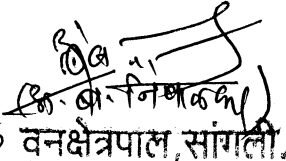 (अ. बा. निंबाळकर)
वनक्षेत्रपाल, सांगली.